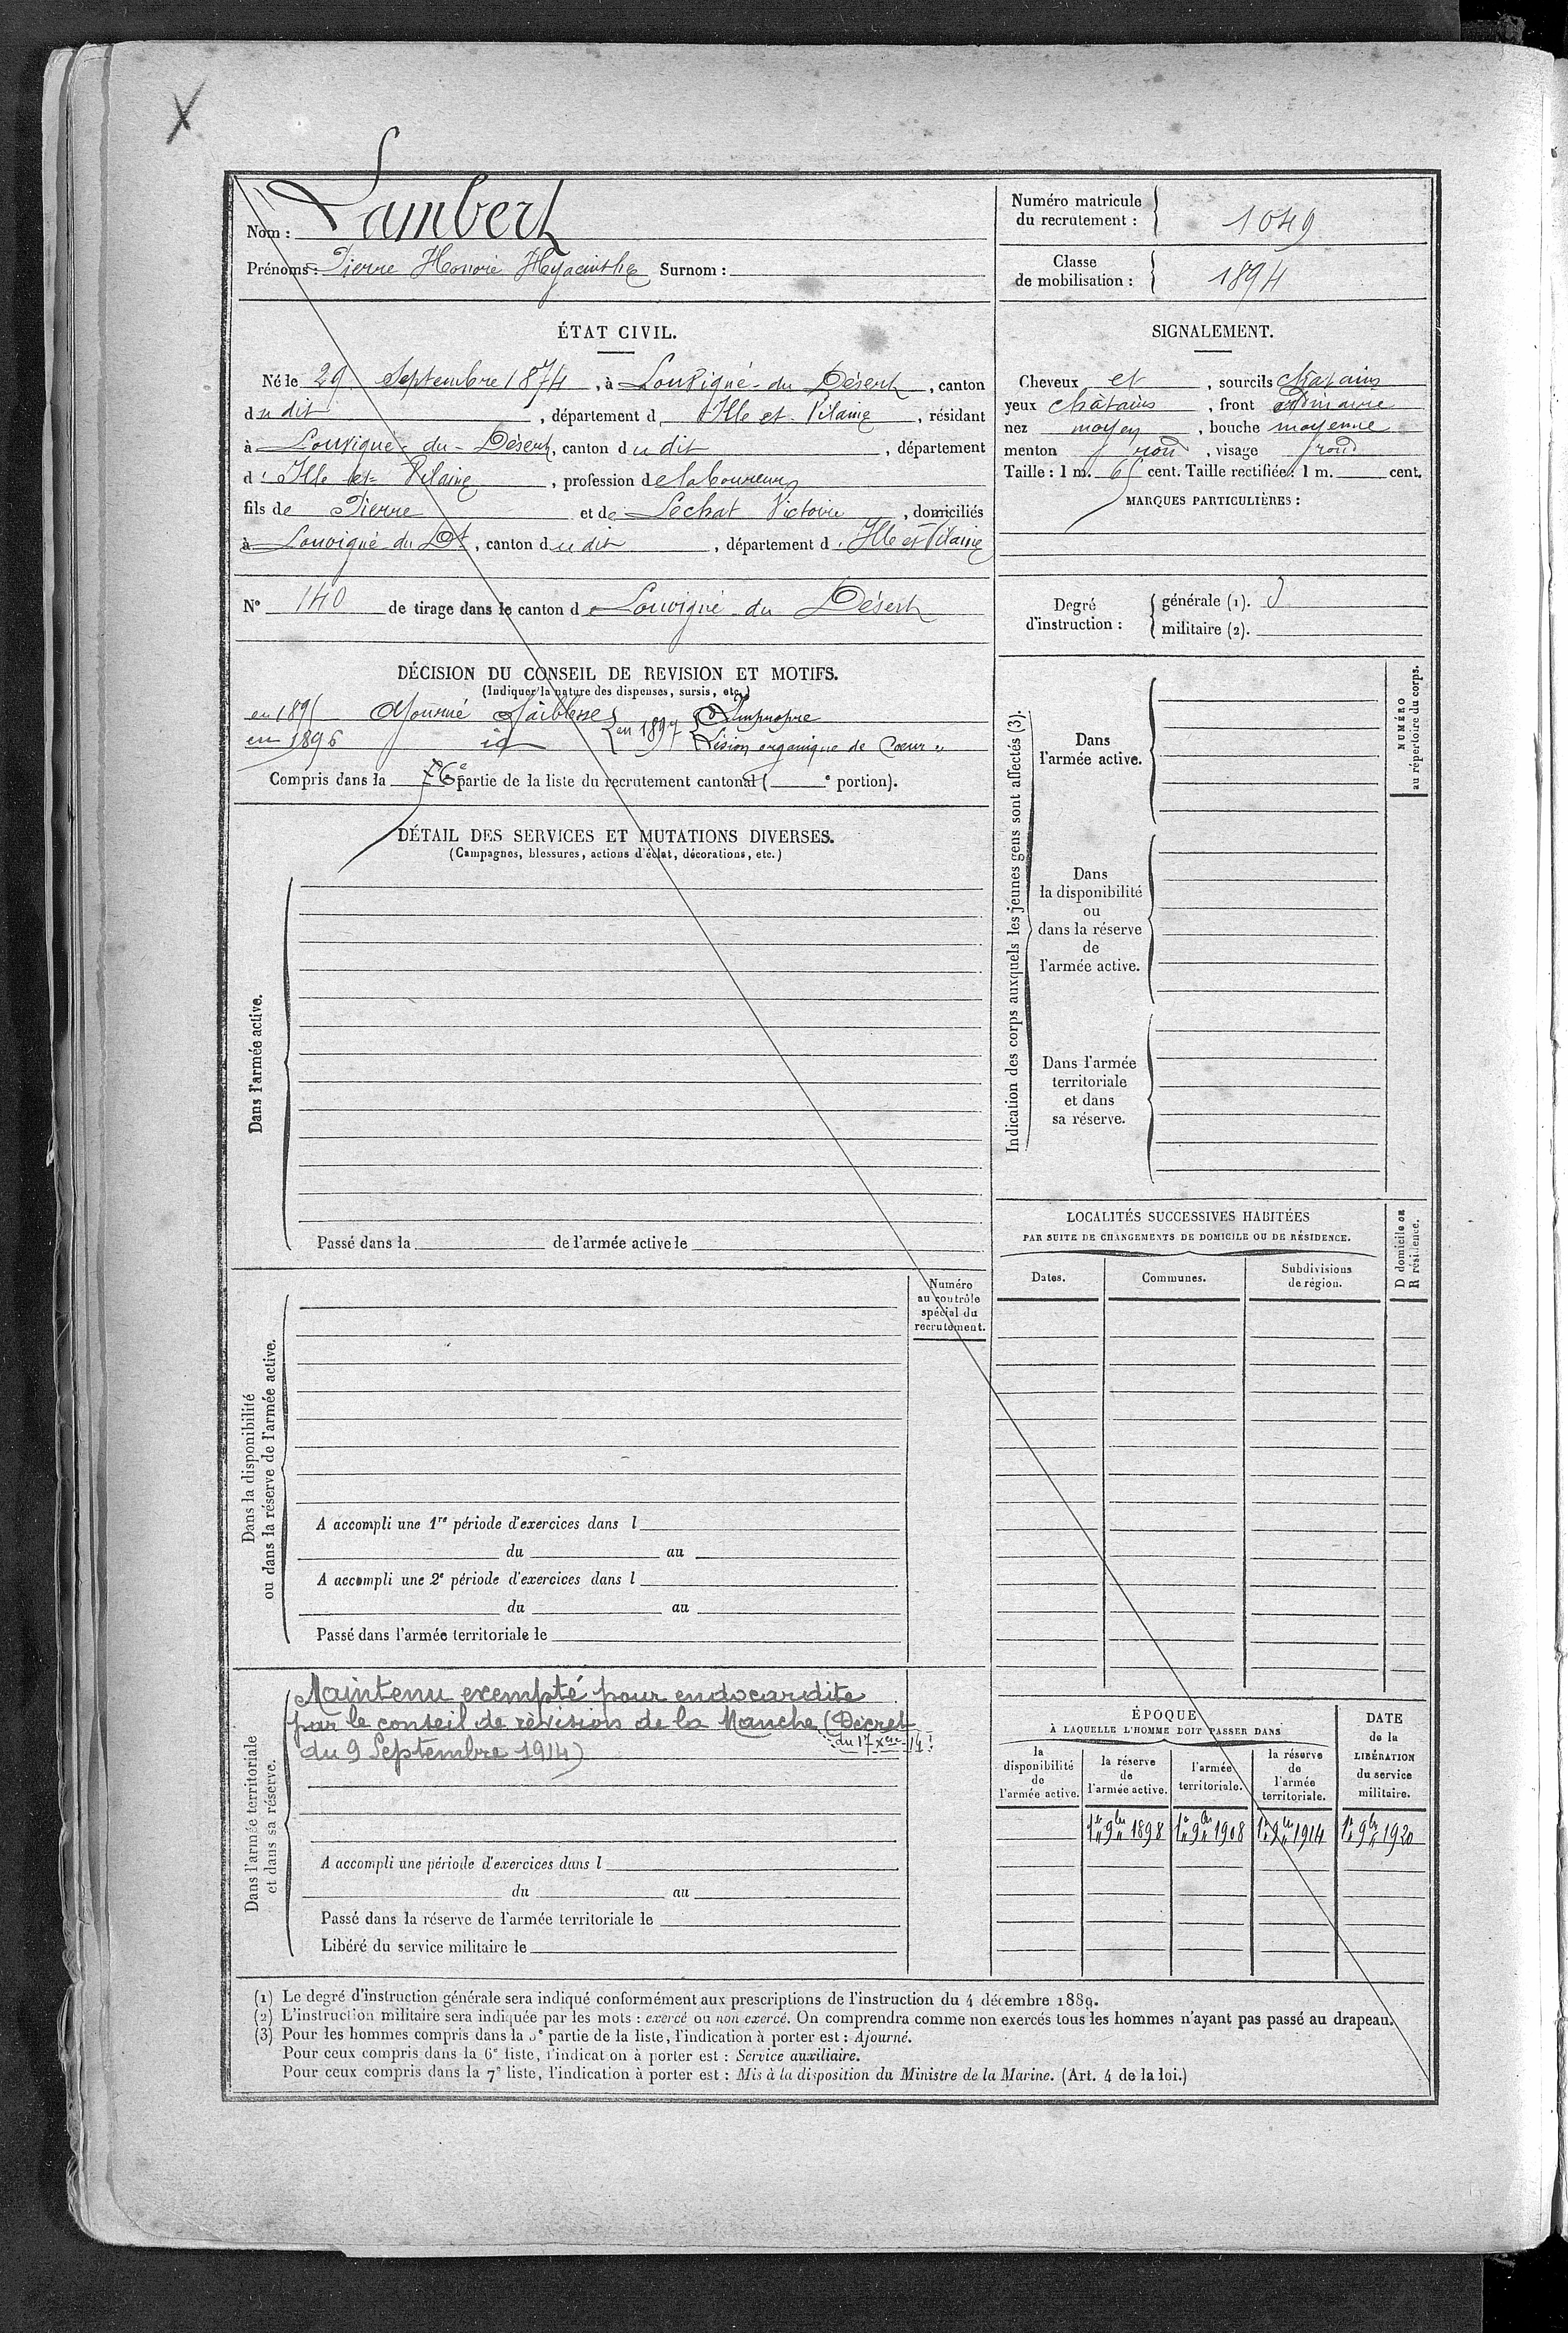 X
Nom : Lambert
Prénoms : Pierre Honoré Hyacinthe Surnom :
Numéro matricule
du recrutement : 1049
Classe
de mobilisation : 1894
ÉTAT CIVIL.
Né le 29 Septembre 1874, à Louvigné-du Désert, canton
du dit, département d Ille et Vilaine, résidant
à Louvigné-du-Désert, canton du dit, département
d'Ille et Vilaine, profession de laboureur
fils de Pierre et de Lechat Victoire, domiciliés
à Louvigné du Dt, canton du dit, département d'Ille et Vilaine
N° 140 de tirage dans le canton de Louvigné du Désert
SIGNALEMENT.
Cheveux et, sourcils chatains
yeux châtains, front ordinaire
nez moyen, bouche moyenne
menton rond, visage rond
Taille : 1 m. 65 cent. Taille rectifiée : 1 m. cent.
MARQUES PARTICULIÈRES :
Degré
d'instruction : générale (1).
militaire (2).
DÉCISION DU CONSEIL DE REVISION ET MOTIFS.
(Indiquer la nature des dispenses, sursis, etc.)
en 1895 Ajourné faiblesse
en 1896 id
en 1897 Impropre
Lésion organique de Cœur
Compris dans la partie de la liste du recrutement cantonal ( e portion).
DÉTAIL DES SERVICES ET MUTATIONS DIVERSES.
(Campagnes, blessures, actions d'éclat, décorations, etc.)
Dans l'armée active.
Passé dans la de l'armée active le
Numéro
au contrôle
spécial du
recrutement.
Dans la disponibilité
ou dans la réserve de l'armée active.
A accompli une 1re période d'exercices dans l
du au
A accompli une 2e période d'exercices dans l
du au
Passé dans l'armée territoriale le
Dans l'armée territoriale
et dans sa réserve.
Maintenu exempté pour endocardite
par le conseil de révision de la Manche (Décret
du 9 Septembre 1914) du 17 Xbre 14
A accompli une période d'exercices dans l
du au
Passé dans la réserve de l'armée territoriale le
Libéré du service militaire le
Indication des corps auxquels les jeunes gens sont affectés (3).
Dans
l'armée active.
Dans
la disponibilité
ou
dans la réserve
de
l'armée active.
Dans l'armée
territoriale
et dans
sa réserve.
NUMÉRO
au répertoire du corps.
LOCALITÉS SUCCESSIVES HABITÉES
PAR SUITE DE CHANGEMENTS DE DOMICILE OU DE RÉSIDENCE.
Dates.
Communes.
Subdivisions
de région.
D domicile ou
R résidence.
ÉPOQUE
À LAQUELLE L'HOMME DOIT PASSER DANS
la
disponibilité
de
l'armée active.
la réserve
de
l'armée active.
l'armée
territoriale.
la réserve
de
l'armée
territoriale.
DATE
de la
LIBÉRATION
du service
militaire.
1er 9bre 1898 1er 9bre 1908 1er 9bre 1914 1er 9bre 1920
(1) Le degré d'instruction générale sera indiqué conformément aux prescriptions de l'instruction du 4 décembre 1889.
(2) L'instruction militaire sera indiquée par les mots : exercé ou non exercé. On comprendra comme non exercés tous les hommes n'ayant pas passé au drapeau.
(3) Pour les hommes compris dans la 5e partie de la liste, l'indication à porter est : Ajourné.
Pour ceux compris dans la 6e liste, l'indication à porter est : Service auxiliaire.
Pour ceux compris dans la 7e liste, l'indication à porter est : Mis à la disposition du Ministre de la Marine. (Art. 4 de la loi.)